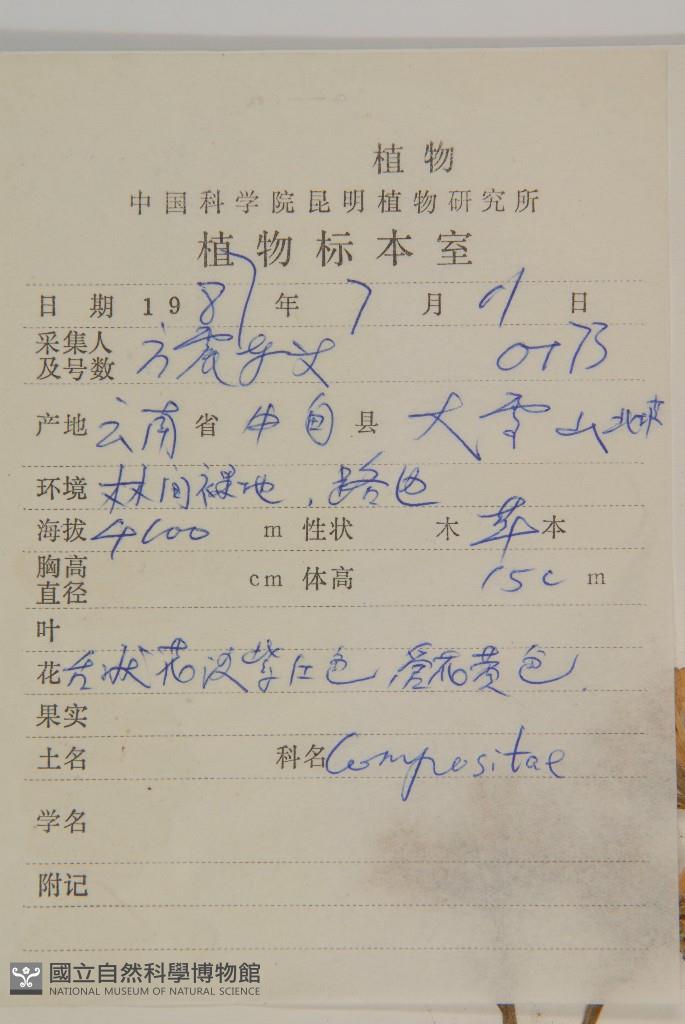 植物
中国科学院昆明植物研究所
植物标本室
日期 1987年 7月 日
采集人
及号数 方震东 0173
产地 云南省 中甸县 大雪山北坡
环境 林间裸地,路边
海拔 4100 m 性状 木 草本
胸高
直径 cm 体高 15 c m
叶
花 舌状花淡紫红色 管花黄色.
果实
土名 科名 Compositae
学名
附记
國立自然科學博物館
NATIONAL MUSEUM OF NATURAL SCIENCE